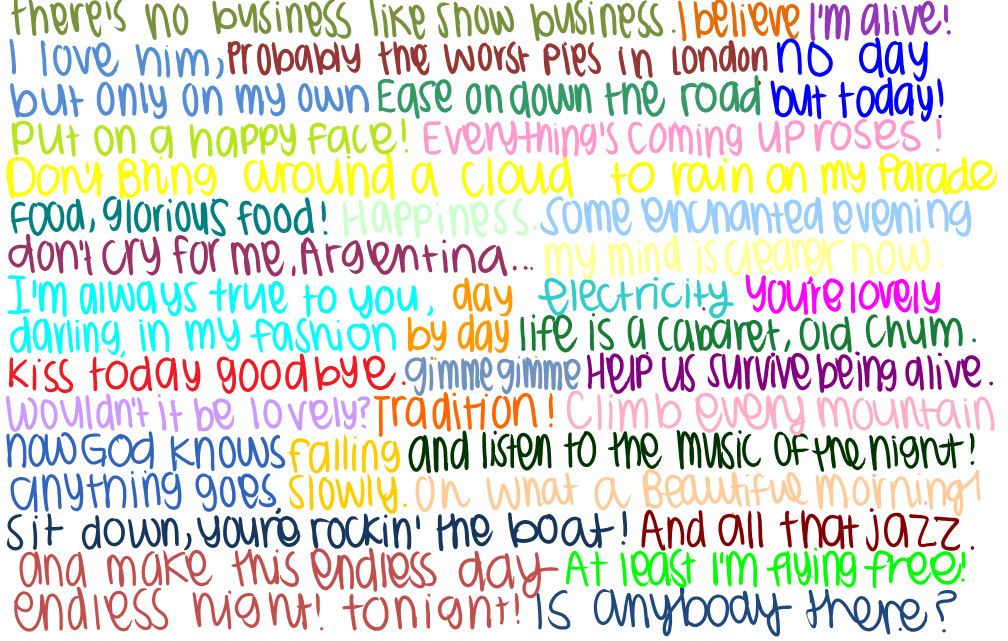 there's no business like show business. I believe I'm alive!
I love him, Probably the worst pies in London no day
but only on my own Ease on down the road but today!
Put on a happy face! Everything's coming up roses!
Don't Bring around a cloud to rain on my Parade
Food, glorious food! Happiness. Some enchanted evening
don't cry for me, Argentina... my mind is clearer now.
I'm always true to you, day electricity You're lovely
darling, in my fashion by day life is a cabaret, old chum.
Kiss today goodbye. gimme gimme Help us survive being alive.
Wouldn't it be lovely? Tradition! Climb every mountain
now God knows falling and listen to the music of the night!
anything goes. slowly. Oh what a Beautiful morning!
Sit down, you're rockin' the boat! And all that jazz.
and make this endless day At least I'm flying free!
endless night! tonight! Is anybody there?